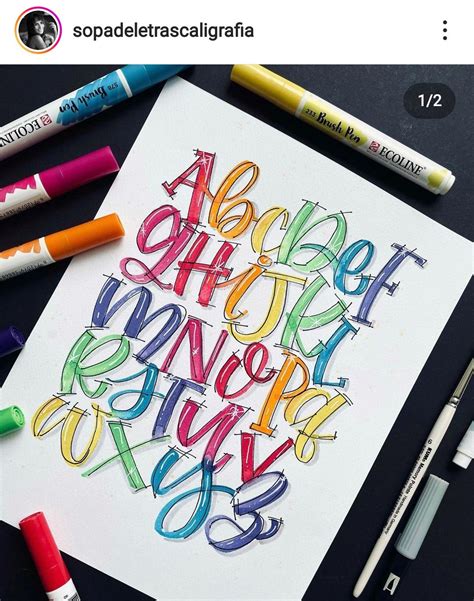 sopadeletrascaligrafia
1/2
Brush Pen
ECOLINE
Brush Pen
ECOLINE
AbcDeF
gHiJKL
mNoPq
RsTuV
wxyz